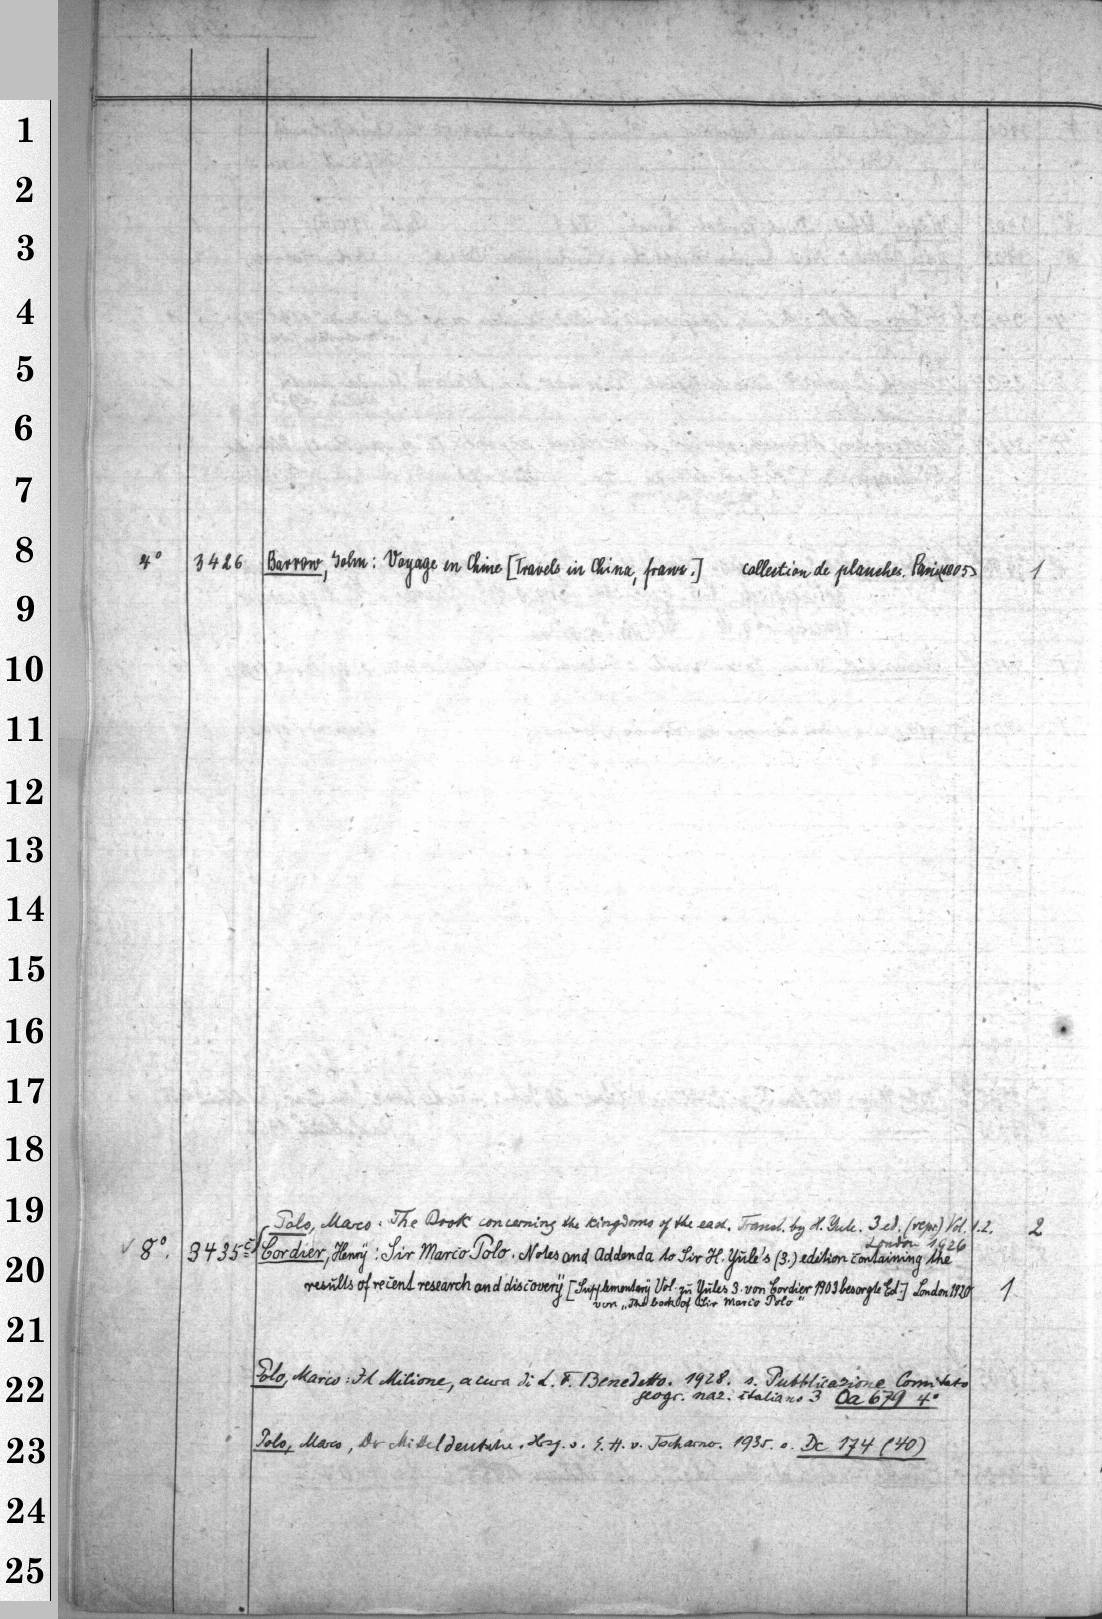 1
2
3
4
5
6
7
8
4° 3426 Barrow, John: Voyage en Chine [Travels in China, franz.] collection de planches. Paris (1805) 1
9
10
11
12
13
14
15
16
17
18
19
Polo, Marco: The Book concerning the kingdoms of the east. Transl. by H. Yule. 3 ed. (repr.) Vol. 1.2. 2
London 1926
√ 8°. 3435 Cordier, Henry: Sir Marco Polo. Notes and Addenda to Sir H. Yule's (3.) edition containing the
20
results of recent research and discovery [Supplementary Vol. zu Yules 3. von Cordier 1903 besorgte Ed.] London 1920 1
von „The book of Sir Marco Polo"
21
Polo, Marco: Il Milione, a cura di L. F. Benedetto. 1928. s. Pubblicazione Comitato
22
geogr. naz. italiano 3 Oa 679 4°
23
Polo, Marco, Der Mitteldeutsche. Hrsg. v. E. H. v. Tscharner. 1935. s. Dc 174 (40)
24
25